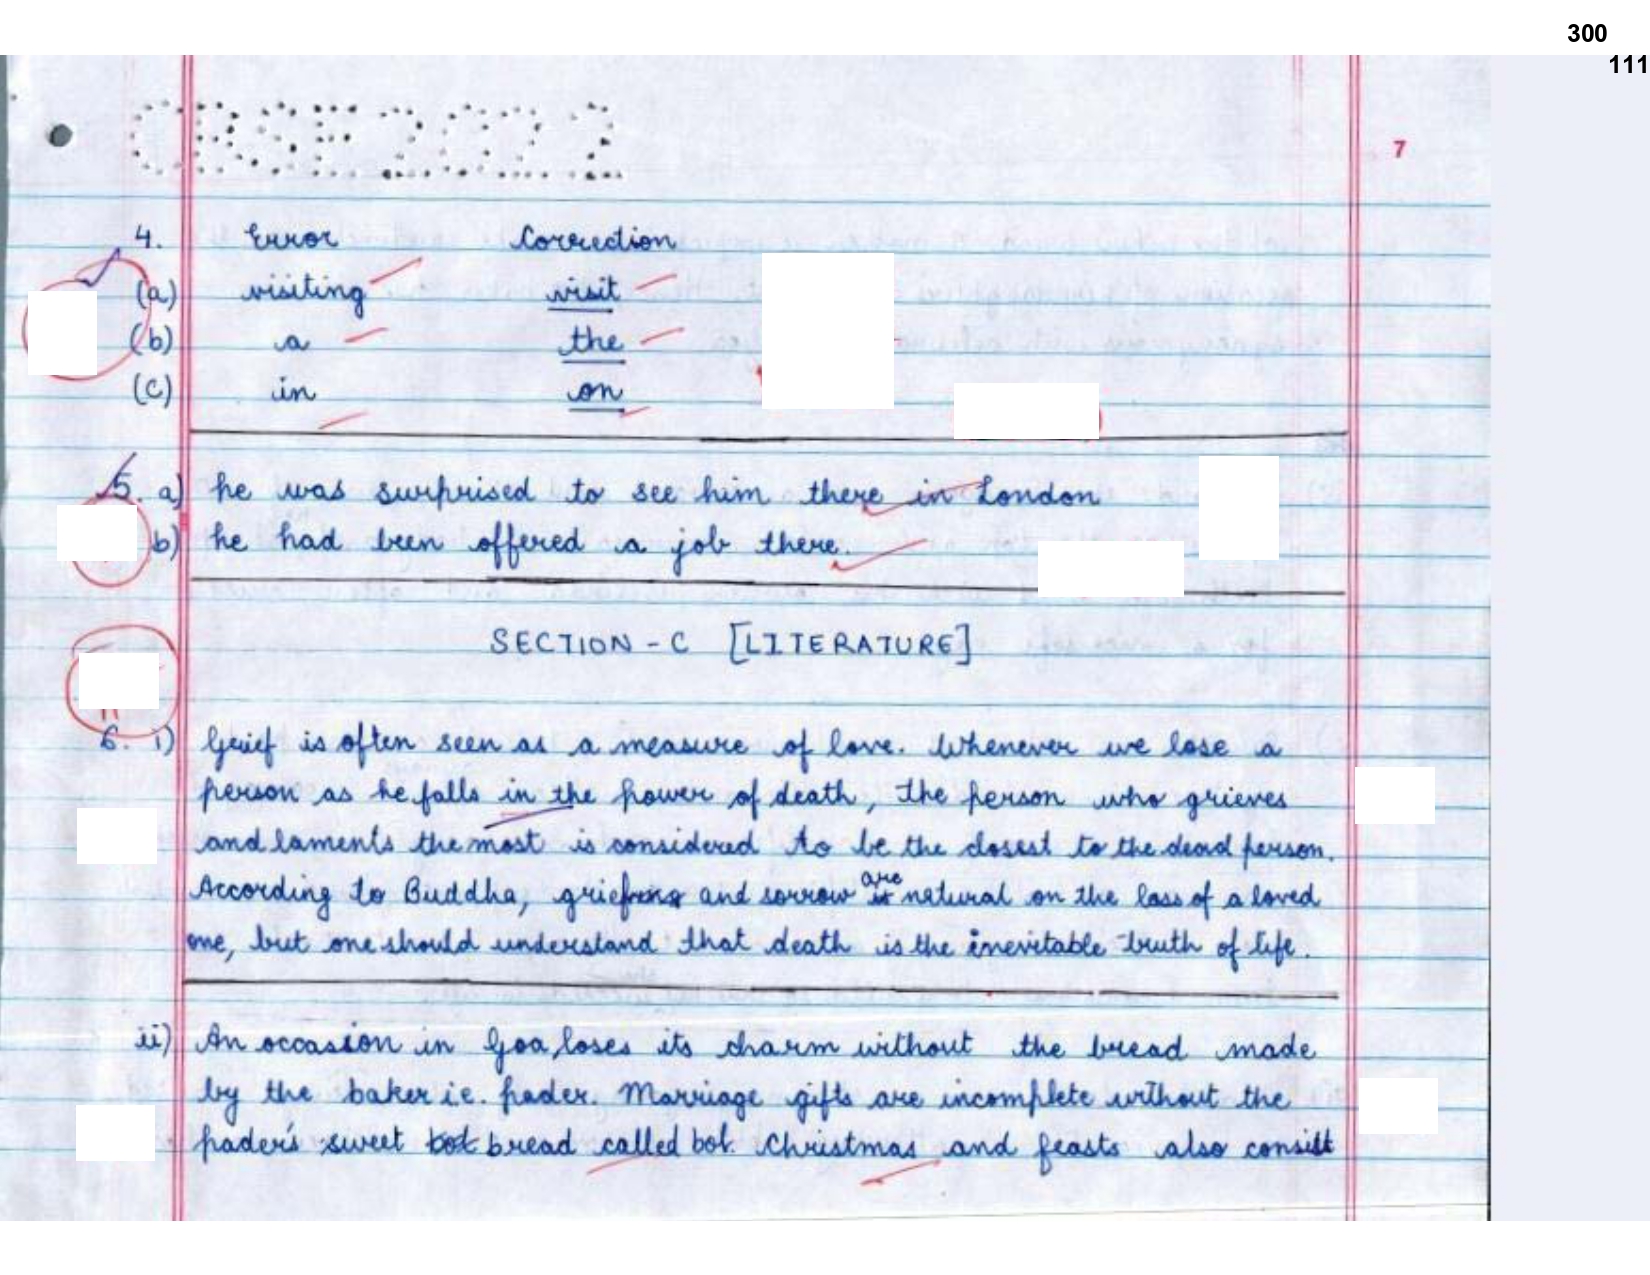 300
111
CBSE2022
7
4. Error Correction
(a) visiting visit
(b) a the
(c) in on
5. a) he was surprised to see him there in London
b) he had been offered a job there.
SECTION - C [LITERATURE]
6. i) Grief is often seen as a measure of love. Whenever we lose a
person as he falls in the power of death, the person who grieves
and laments the most is considered to be the closest to the dead person.
According to Buddha, grief and sorrow are natural on the loss of a loved
one, but one should understand that death is the inevitable truth of life.
ii) An occasion in Goa, loses its charm without the bread made
by the baker i.e. pader. Marriage gifts are incomplete without the
pader's sweet bread called bol. Christmas and feasts also consist